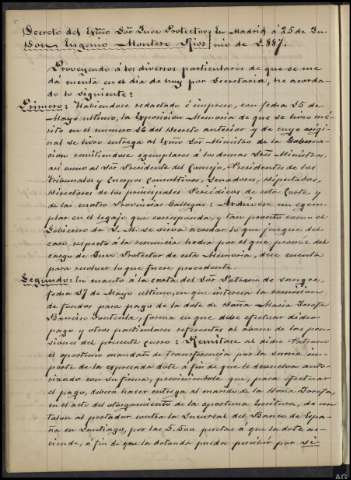 Decreto del Exmo Sor Juez Protector en Madrid á 25 de Ju-
Don Eugenio Montero Rios nio de 1.887.
Proveyendo á los diversos particulares de que se me
dá cuenta en el dia de hoy por Secretaría, he acorda-
do lo siguiente:
Primero: Habiéndose redactado é impreso, con fecha 25 de
Mayo último, la Exposicion Memoria de que se hizo mé-
rito en el número 26 del Decreto anterior y de cuyo origi-
nal se hizo entrega al Exmo Sor Ministro de la Goberna-
cion remitiéndose ejemplares á los demas Sres Ministros,
así como al Sor Presidente del Consejo, Presidentes de los
Tribunales y Cuerpos Consultivos, Senadores, Diputados,
Directores de los principales Periódicos de esta Corte y
de las cuatro Provincias Gallegas: Archívese un ejem-
plar en el legajo que corresponda, y tan pronto como el
Gobierno de S. M. se sirva acordar lo que juzgue del
caso respecto á la renuncia hecha por el que provee del
cargo de Juez Protector de esta Memoria, dése cuenta
para resolver lo que fuere procedente.
Segundo: En cuanto á la carta del Sor Patrono de sangre,
fecha 27 de Mayo último, en que interesa la remision
de fondos para pago de la dote de Doña María Josefa
Barreiro Fontenla, forma en que debe efectuar dicho
pago y otros particulares referentes al abono de las pen-
siones del presente curso: Remítase al dicho Patrono
el oportuno mandato de transferencia por la suma im-
porte de la expresada dote á fin de que lo devuelva auto-
rizado con su firma; previniéndole que, para efectuar
el pago, deberá hacer entrega al marido de la Doña Josefa,
en el acto del otorgamiento de la oportuna Escritura, de un
talon al portador contra la Sucursal del Banco de Espa-
ña en Santiago, por las 5.500 pesetas á que la dote as-
ciende, á fin de que la dotada pueda percibir por sí